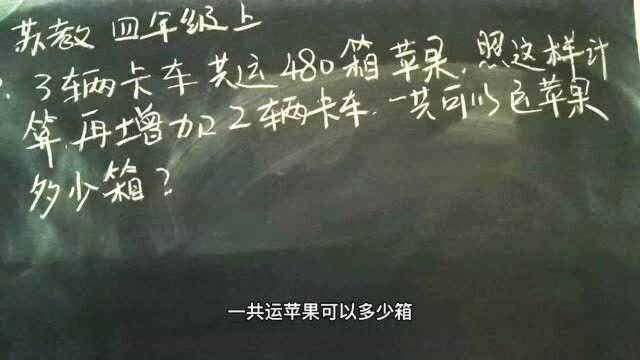 苏教 四年级上
3辆卡车共运480箱苹果,照这样计
算,再增加2辆卡车,一共可以运苹果
多少箱?
一共运苹果可以多少箱